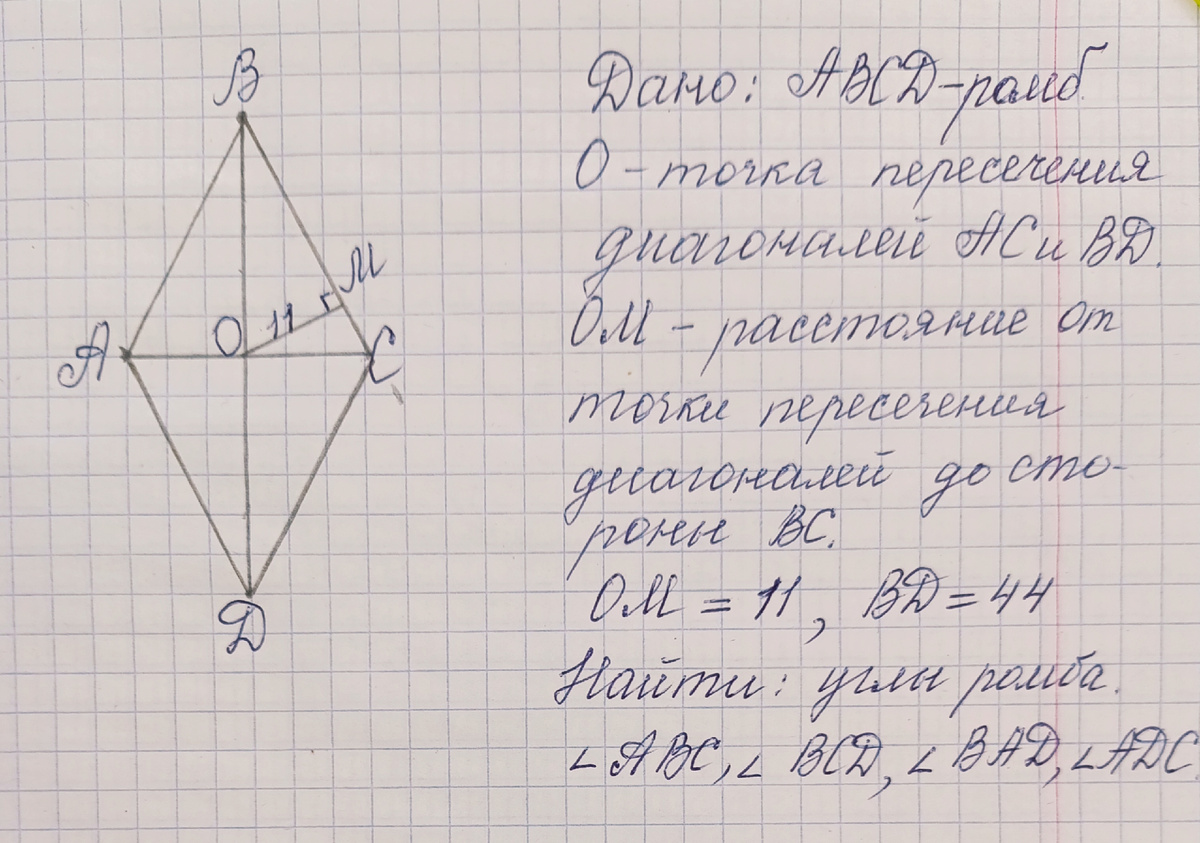 B
M
O 11
A
C
D
Дано: ABCD-ромб.
O - точка пересечения
диагоналей AC и BD.
OM - расстояние от
точки пересечения
диагоналей до сто-
роны BC.
OM = 11, BD = 44
Найти: углы ромба.
∠ABC, ∠BCD, ∠BAD, ∠ADC.